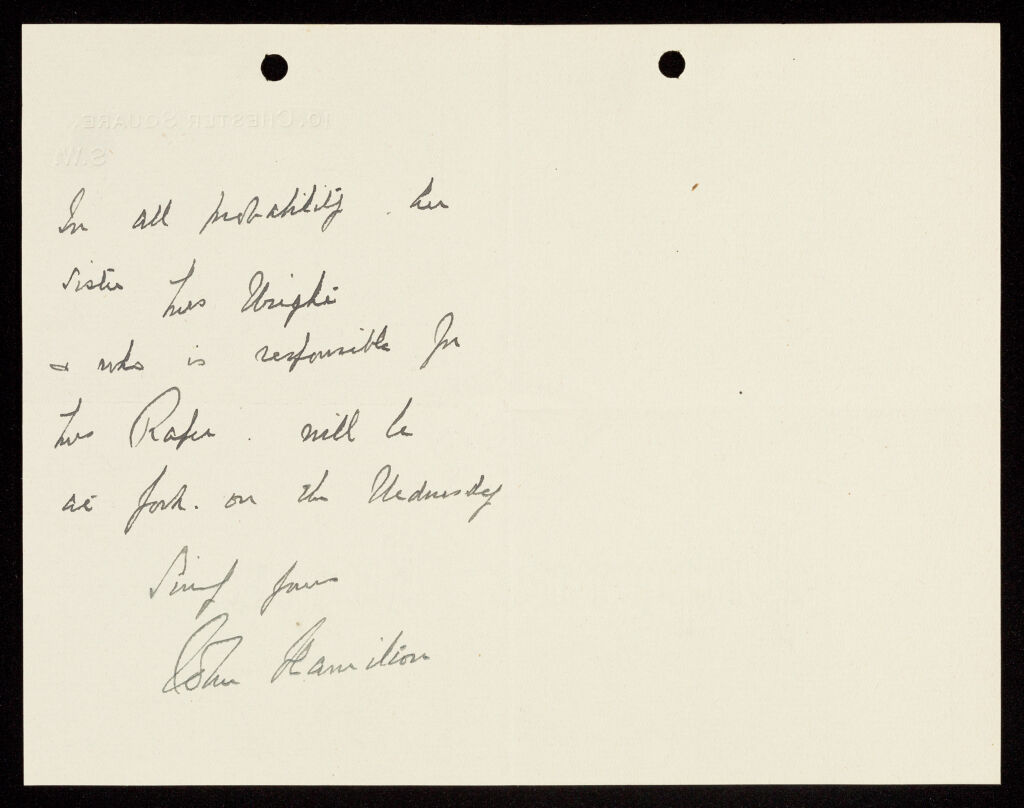 10, CHESTER SQUARE,
S.W.
In all probability her
sister Mrs Wright
& who is responsible for
Mrs Roper. will be
at York. on the Wednesday
Sincly yours
John Hamilton